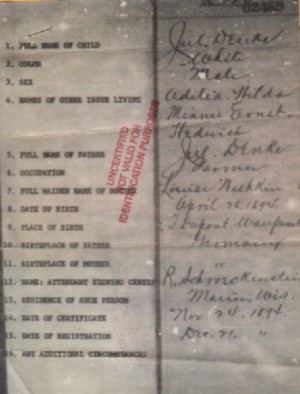 02468
1. FULL NAME OF CHILD Jul. Denke
2. COLOR White
3. SEX Male
4. NAMES OF OTHER ISSUE LIVING Adelia. Hilda
Minnie Ernst.
Hedwich
5. FULL NAME OF FATHER Jul. Denke
6. OCCUPATION Farmer
7. FULL MAIDEN NAME OF MOTHER Louise
8. DATE OF BIRTH April 1894
9. PLACE OF BIRTH T. Dupont Waupaca
10. BIRTHPLACE OF FATHER Germany
11. BIRTHPLACE OF MOTHER "
12. NAME: ATTENDANT SIGNING CERTIF R.
13. RESIDENCE OF SUCH PERSON Marion, Wis.
14. DATE OF CERTIFICATE Nov 24. 1894.
15. DATE OF REGISTRATION Dec. 21. "
16. ANY ADDITIONAL CIRCUMSTANCES
UNCERTIFIED
NOT VALID FOR
IDENTIFICATION PURPOSES